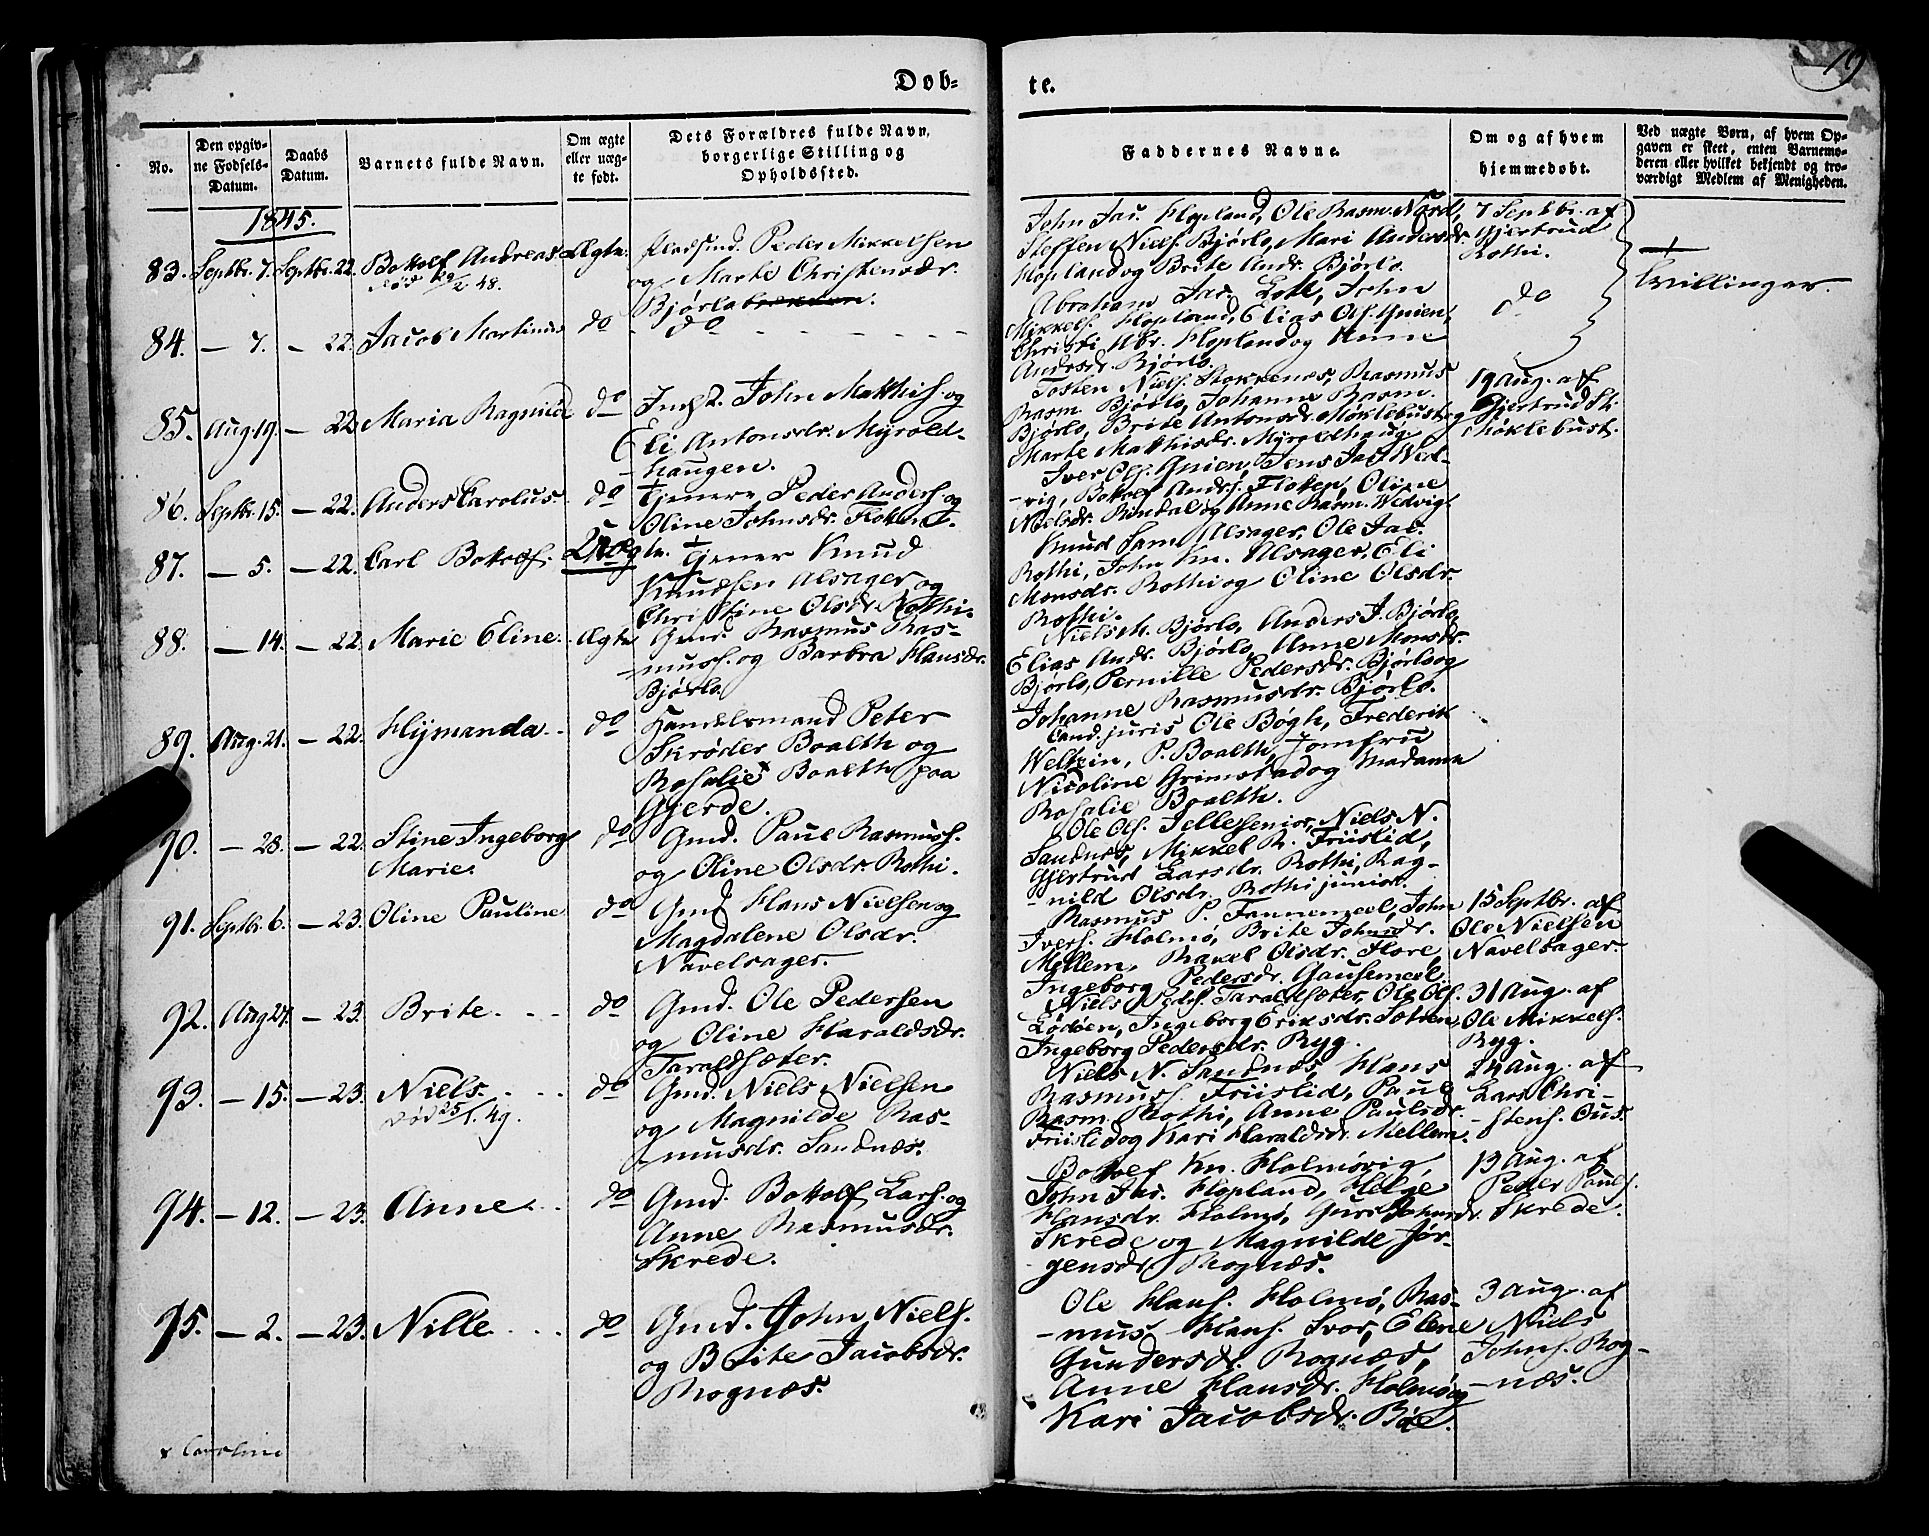 19
Døb-
te.
No.
Den opgiv-
ne Fødsels-
Datum.
Daabs
Datum.
Barnets fulde Navn.
Om ægte
eller uæg-
te født.
Dets Forældres fulde Navn,
borgerlige Stilling og
Opholdssted.
Faddernes Navne.
Om og af hvem
hjemmedøbt.
Ved uægte Børn, af hvem Op-
gaven er skeet, enten Barnemo-
deren eller hvilket bekjendt og tro-
værdigt Medlem af Menigheden.
1845.
83. Septbr. 7. Septbr. 22. Bottolf Andreas Ægte.
død 29/2 48.
Pladsmd. Peder Mikkelsen
og Marte Christensdr.
Bjørlo
John Jac. Hopland, Ole Rasm. Nord,
Steffen Niels. Bjørlo, Mari Andersdr.
Hopland og Brite Andr. Bjørlo.
7 Septbr. af
Gjertrud
Rothi.
Tvillinger.
84. — 7. — 22. Jacob Martinus do
do
Abraham Jac. Lote, John
Mikkels. Hopland, Elias Ols. Gnien,
Christi Abr. Hopland og Anne
Andrsdr. Bjørlo.
do
85. Aug. 19. — 22. Maria Ragnild do
Indst. John Matthis. og
Eli Antonsdr. Myrold-
haugen.
Tosten Niels. Stokkenes, Rasmus
Rasm. Bjørlo, Johanne Rasm.
Bjørlo, Brite Antonsdr. Møklebust og
Marte Matthisdr. Myroldhaug.
19 Aug. af
Gjertrud St.
Møklebust.
86. Septbr. 15. — 22. Anders Carolus. do
Tjenere Peder Anders. og
Oline Johnsdr. Floten.
Iver Ols. Gnien, Jens Jac. Wed-
-vig, Bottolf Andrs. Floten, Oline
Nielsdr. Rindal og Anne Rasm. Wedvig.
87. — 5. — 22. Carl Bottolf. Uægte.
Tjener Knud
Knudsen Alsager og
Christine Olsdr. Rothi.
Knud Sam. Alsager, Ole Jac.
Rothi, John Kn. Alsager, Eli
Monsdr. Rothi og Oline Olsdr.
Rothi.
88. — 14. — 22. Marie Eline. Ægte
Gmd. Rasmus Ras-
-muss. og Barbra Hansdr.
Bjørlo
Niels M. Bjørlo, Anders J. Bjørlo,
Elias Andr. Bjørlo, Anne Monsdr.
Bjørlo, Pernille Pedersdr. Bjørlo og
Johanne Rasmusdr. Bjørlo.
89. Aug. 21. — 22. Hlymanda. do
Handelsmand Peter
Skrøder Boalth og
Rosalie x Boalth paa
Gjerde.
Cand. juris Ole Bøgh, Frederik
Weltzin, P. Boalth, Jomfru
Nicoline Grimstad og Madame
Rosalie Boalth.
90. — 28. — 22. Stine Ingeborg
Marie. do
Gmd. Paul Rasmuss.
og Oline Olsdr. Rothi.
Ole Ols. Jelle senior, Niels N.
Sandnes, Mikkel R. Friislid,
Gjertrud Larsdr. Rothi, Rag-
-nild Olsdr. Rothi junior.
91. Septbr. 6. — 23. Oline Pauline do
Gmd Hans Nielsen og
Magdalene Olsdr.
Navelsager.
Rasmus P. Tannemeel, John
Ivers. Holmø, Brite Johnsdr.
Mellem, Rakel Olsdr. Hore,
Ingeborg Pedersdr. Gausemeel.
15 Septbr. af
Ole Nielsen
Navelsager.
92. Aug 27. — 23. Brite. do
Gmd. Ole Pedersen
og Oline Haraldsdr.
Taraldsæter.
Niels Peds. Taraldsæter, Ole Ols.
Lødøen, Ingeborg Eriksdr. Sætren,
Ingeborg Pedersdr. Ryg.
31 Aug. af
Ole Mikkels.
Ryg.
93. — 15. — 23. Niels. do
død 25/1. 49.
Gmd. Niels Nielsen
og Magnilde Ras-
-musdr. Sandnæs.
Niels N. Sandnæs, Hans
Rasmuss. Friislid, Paul
Rasm. Rothi, Anne Paulsdr.
Friislid og Kari Haraldsdr. Mellem.
24 Aug. af
Lars Chri-
-stens. Ous.
94. — 12. — 23. Anne. do
Gmd. Bottolf Lars. og
Anne Rasmusdr.
Skrede.
Bottolf Kn. Holmøvig,
John Jac. Hopland, Helge
Hansdr. Holmø, Guri Johnsdr.
Skrede og Magnilde Jør-
gensdr. Rognæs.
13 Aug. af
Peder Pauls.
Skrede.
95. — 2. — 23. Nille do
Gmd. John Niels.
og Brite Jacobsdr.
Rognæs.
Ole Hans. Holmø, Ras-
-mus Hans. Svor, Elene
Gundersdr. Rognæs,
Anne Hansdr. Holmø og
Kari Jacobsdr. Bøe.
3 Aug. af
Niels
Johns. Rog-
-næs.
x Caroline